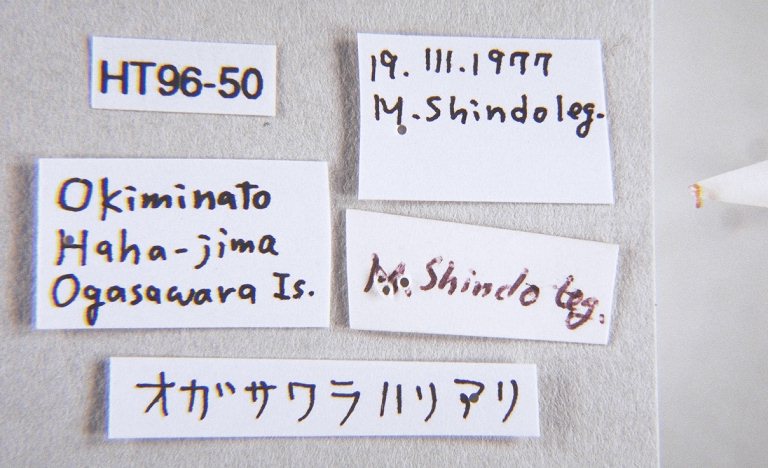 HT96-50
19.III.1977
M.Shindo leg.
Okiminato
Haha-jima
Ogasawara Is.
M. Shindo leg.
オガサワラハリアリ